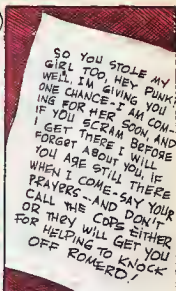 SO YOU STOLE MY
GIRL TOO, HEY PUNK?
WELL, I'M GIVING YOU
ONE CHANCE-I AM COM-
ING FOR HER SOON, AND
IF YOU SCRAM BEFORE
I GET THERE I WILL
FORGET ABOUT YOU, IF
YOU ARE STILL THERE
WHEN I COME-SAY YOUR
PRAYERS--AND DON'T
CALL THE COPS EITHER
OR THEY WILL GET YOU
FOR HELPING TO KNOCK
OFF ROMERO!